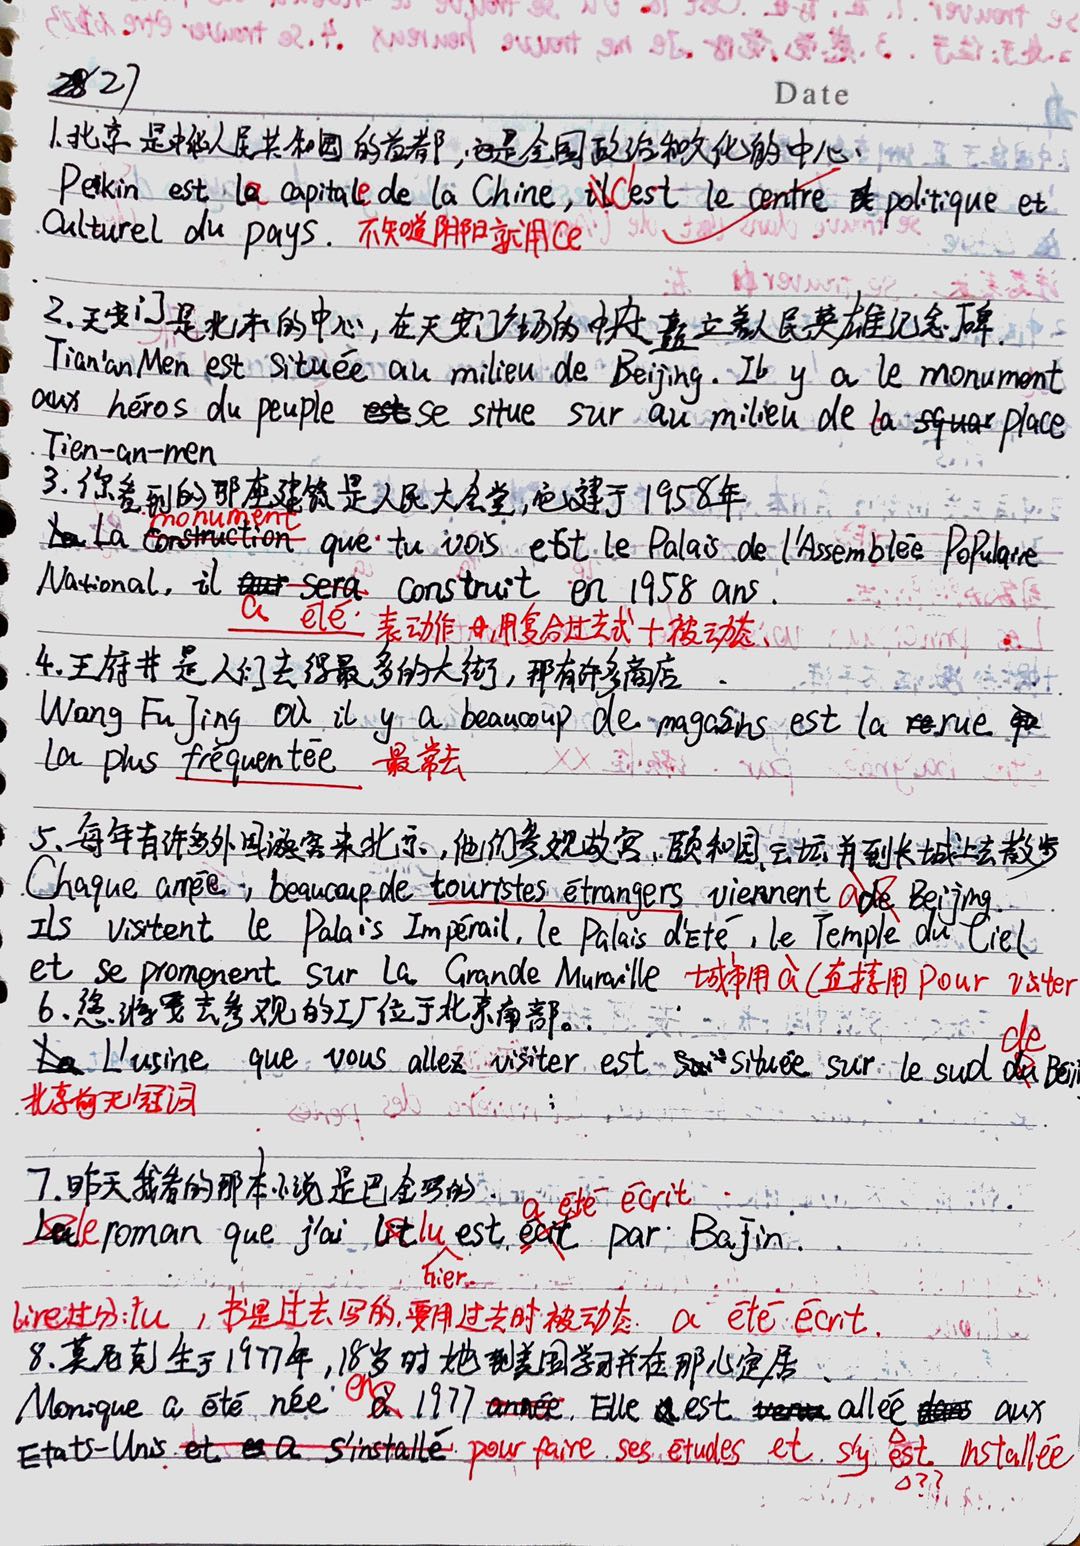 27
Date
1.北京是中华人民共和国的首都,也是全国政治和文化的中心.
Pekin est la capitale de la Chine, c'est le centre politique et
Culturel du pays. 不知道阴阳就用ce
2.天安门是北京的中心,在天安门广场的中央矗立着人民英雄纪念碑.
Tian'an Men est située au milieu de Beijing. Il y a le monument
aux héros du peuple se situe sur au milieu de la place
Tien-an-men
3.你看到的那座建筑是人民大会堂,它建于1958年
monument
La construction que tu vois est le Palais de l'Assemblée Populaire
National, il sera construit en 1958 ans.
a été 表动作 用复合过去式+被动态.
4.王府井是人们去得最多的大街,那有许多商店
Wang Fu Jing où il y a beaucoup de magasins est la rue
la plus fréquentée 最常去
5.每年有许多外国游客来北京,他们参观故宫,颐和园,天坛并到长城上去散步
Chaque année, beaucoup de touristes étrangers viennent à Beijing.
Ils visitent le Palais Impérail, le Palais d'Eté, le Temple du Ciel
et se promenent sur La Grande Muraille +城市用à(直接用pour visiter
6.您将要去参观的工厂位于北京南部.
de
L'usine que vous allez visiter est située sur le sud du Beiji
北京前无冠词
7.昨天我看的那本小说是巴金写的.
a été écrit
le roman que j'ai lu est écrit par Bajin.
hier.
lire过分:lu,书是过去写的,要用过去时被动态. a été écrit.
8.莫尼克生于1977年,18岁时她到美国学习并在那儿定居.
en
Monique a été née à 1977 année. Elle est allée aux
Etats-Unis et a s'installé pour faire ses études et s'y est installée
??